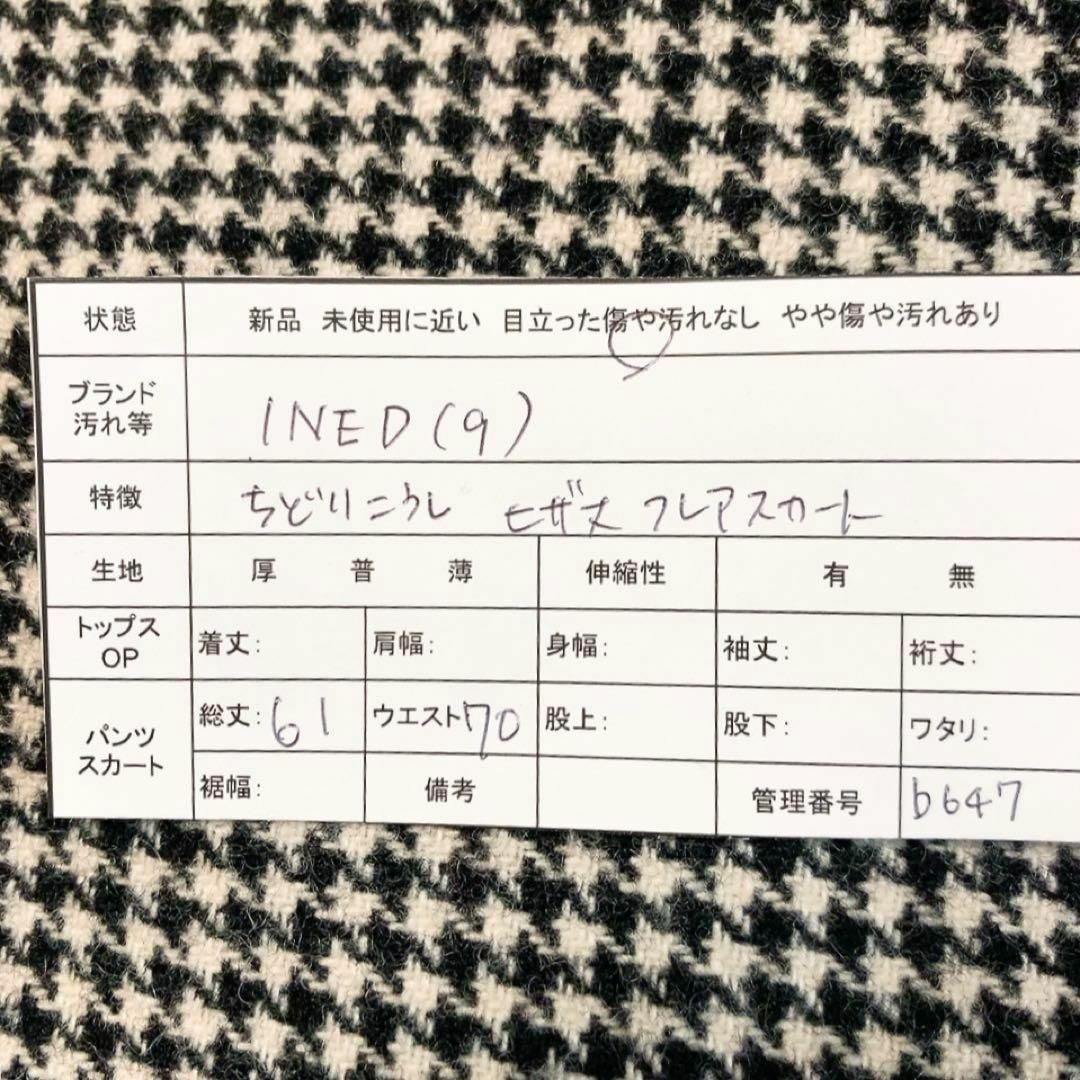 状態 新品 未使用に近い 目立った傷や汚れなし やや傷や汚れあり
ブランド
汚れ等 INED(9)
特徴 ちどりこうし ヒザ丈 フレアスカート
生地 厚 普 薄 伸縮性 有 無
トップス
OP 着丈: 肩幅: 身幅: 袖丈: 裄丈:
パンツ
スカート 総丈:61 ウエスト70 股上: 股下: ワタリ:
裾幅: 備考 管理番号 b647